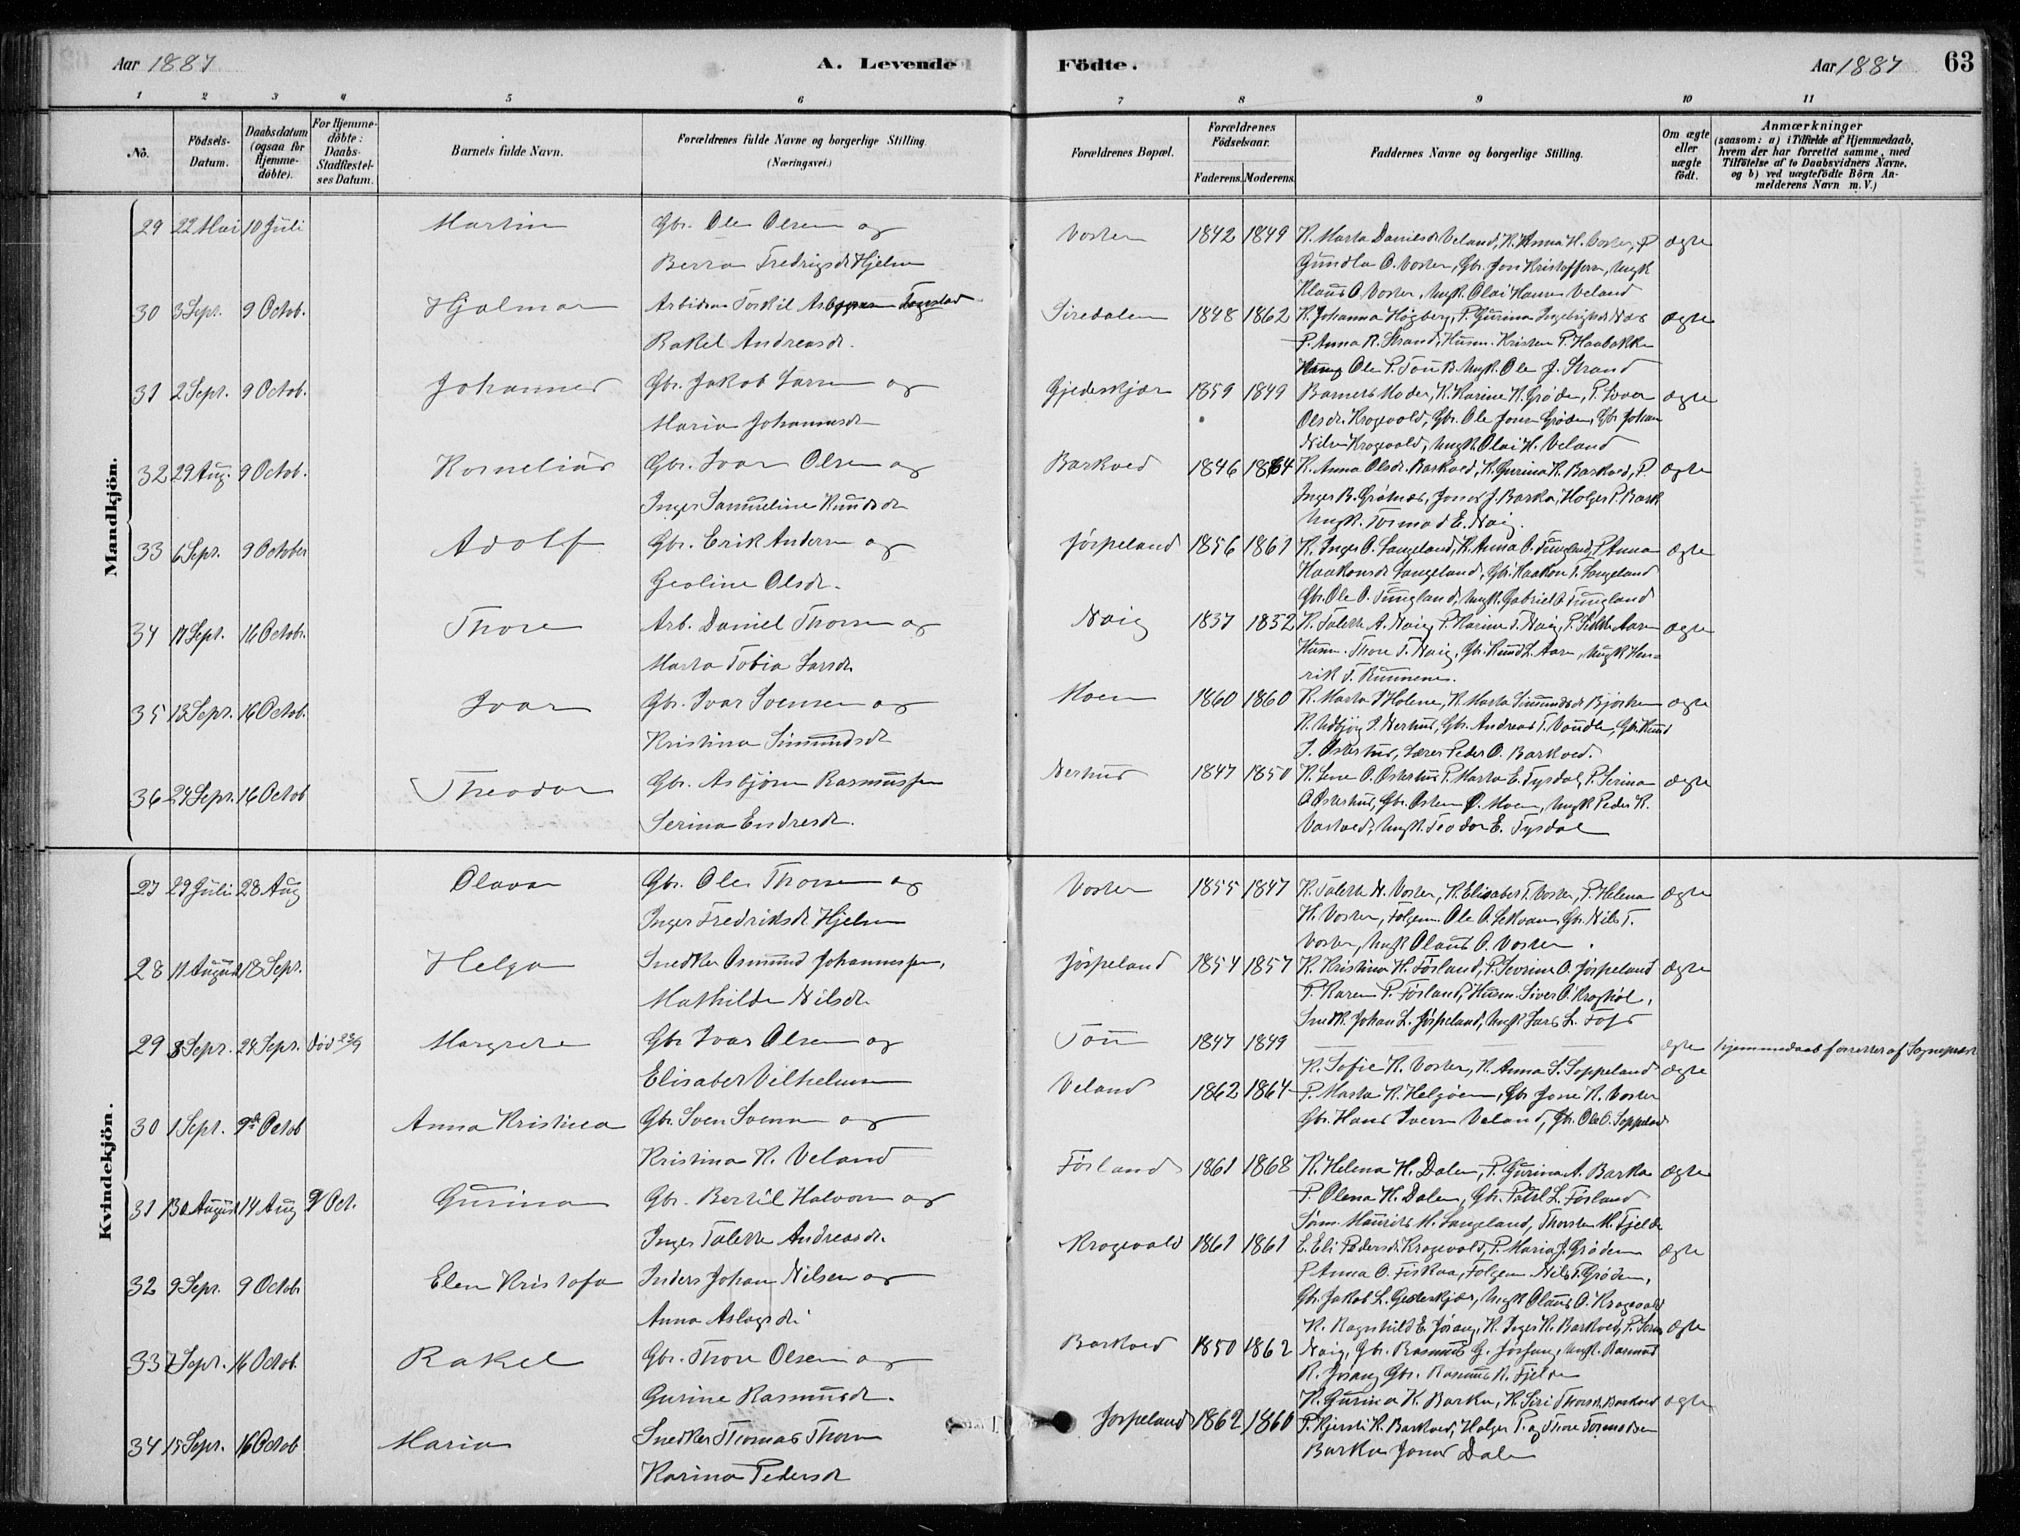 Aar 1887
A. Levende
Födte.
Aar 1887
63
1 2 3 4 5 6 7 8 9 10 11
No.
Födsels-Datum.
Daabsdatum (ogsaa for Hjemme-döbte).
For Hjemme-döbte: Daabs-Stadfæstel-ses Datum.
Barnets fulde Navn.
Forældrenes fulde Navne og borgerlige Stilling (Næringsvei.)
Forældrenes Bopæl.
Forældrenes Födselsaar.
Faderens. Moderens.
Faddernes Navne og borgerlige Stilling.
Om ægte eller uægte födt.
Anmærkninger
(saasom: a) i Tilfælde af Hjemmedaab, hvem der har forrettet samme, med Tilföielse af to Daabsvidners Navne, og b) ved uægtefödte Börn An-melderens Navn m. V.)
Mandkjön.
29 22 Mai 10 Juli Martin Gbr. Ole Olsen og
Berta Fredrigsdr Hjelm
Voster 1842 1849 K. Marta Danielsdr Veland, K. Anna H. Voster, P
Gundla O. Voster, Gbr. Jon Kristoffersen, Ungk
Klaus O. Voster, Ungk. Olai Hansen Veland
ægte
30 3 Sept. 9 Octob. Hjalmar Arbeidsm Torkil Asbjørnsen
Rakel Andreasdr.
Siredalen 1848 1862 K. Johanna Høgberg, P. Gurina Ingebrigtsdr Næs
P. Anna R. Strand, Husm. Kristen P. Haabakke
Ole P. Tou B. Ungk. Ole J. Strand
ægte
31 2 Sept. 9 Octob. Johannes Gbr. Jakob Larsen og
Maria Johannesdr
Gjedeskjær 1859 1849 Barnets Moder, K. Karine K. Grøden, P.
Olsdr. Krogevold, Gbr. Ole Jonsen Grøden, Gbr Johan
Nilsen Krogevold, Ungk. Olai H. Veland
ægte
32 29 Aug. 9 Octob. Kornelius Gbr. Ivar Olsen og
Inger Samueline Knudsdr
Barkved 1846 1864 K. Anna Olsdr. Barkved, K. Gurina K. Barkved, P.
Inger B. Grøtnæs, Jonas J. Barka, Holger P. Bark
Ungk. Tormod E. Naig.
ægte
33 6 Sept. 9 October Adolf Gbr. Erik Andersen og
Geoline Olsdr.
Jørpeland 1856 1861 K. Inger O. Langeland, K. Anna O. Tungland, P. Anna
Haakonsdr Langeland, Gbr. Haakon T. Langeland
Gbr. Ole O. Tungland, Ungk. Gabriel O Tungland
ægte
34 11 Sept. 16 Octobr. Thore Arb. Daniel Thorsen og
Marta Tobia Larsdr.
Naig 1837 1852 K. Talette A. Naig, P. Karine T. Naig, P. Sidthe Aaren
Husm. Thore T. Naig, Gbr. Knud L. Aaren, Ungk Hen-
rik T. Runnene.
ægte
35 13 Sept. 16 Octob. Ivar Gbr. Ivar Svensen og
Kristina Simundsdr
Moen 1860 1860 K. Marta Holene, K. Marta Simundsdr Bjørheim
Nerhus, Gbr. Andreas T. Vaudle, Gbr. Knud
J. Østerhus, Lærer Peder O. Barkved.
ægte
36 24 Sept. 16 Octob Theodor Gbr. Asbjørn Rasmussen
Serina Endresdr.
Nerhus 1847 1850 K. Lene O. Østerhus P. Marta E. Tysdal, P. Serina
O Østerhus, Gbr. Osten Ø. Moen, Ungk Peder K.
Ungk. Teodor E. Tysdal
ægte
Kvindekjön.
27 29 Juli 28 Aug Olava Gbr. Ole Thorsen og
Inger Fredriksdr Hjelm
Voster 1855 1847 K. Talette N. Voster, K. Elisabet T. Voster, P. Helena
H. Voster, Følgem. Ole O. Gbr. Nils T.
Voster, Ungk Olaus O. Voster.
ægte
28 11 August 18 Sept. Helga Snedker Osmund Johannessen,
Mathilde Nilsdr.
Jørpeland 1854 1857 K. Kristina H. Førland, P. Severine O. Jørpeland
P. Karen P. Førland, Husm. Siver O. Kroghøl,
Snedk. Johan L. Jørpeland, Ungk Lars L.
ægte
29 8 Sept. 24 Sept. død 23/9 Margrete Gbr Ivar Olsen og
Elisabet Vilhelmsen
Tou 1847 1849 ægte hjemmedaab forrettet af Sognepræst
30 1 Sept. 9de Octob Anna Kristina Gbr. Sven Svensen og
Kristina K. Veland
Veland 1862 1864 K. Sofie K. Voster, K. Anna S. Soppeland
P. Marta K Helgøen, Gbr Jone K. Voster
Gbr. Hans Iversen Veland, Gbr. Ole O. Soppeland
ægte
31 30 August 14 Aug 9 Oct. Gurina Gbr. Bertil Halvorsen og
Inger Talette Andreasdr.
Førland 1861 1868 K. Helena H. Dalen, P. Gurina A. Barka
P. Olena H. Dalen, Gbr. L. Førland
Søm. Maurits M. Langeland, Thorsten M. Fjelde
ægte
32 9 Sept. 9 Octob Elen Kristofa Inders Johan Nilsen og
Anna Aslagsdr
Krogevold 1861 1861 E. Eli Pedersdr. Krogevold, P. Maria J. Grøden
P Anna O. Fiskaa, Følgem Nils T. Grøden,
Gbr. Jakob L. Gjedeskjær, Ungk Olaus O. Krogevold
ægte
33 7 Sept. 16 Octob. Rakel Gbr. Thore Olsen og
Gurine Rasmusdr.
Barkved 1850 1862 K. Ragnhild E. Jøsang, K. Inger K. Barkved, P. Serin
Naig, Gbr. Rasmus G. Jøssang, Ungk. Rasmus
R. Jøsang Gbr. Rasmus R. Fjelde
ægte
34 15 Sept. 16 Octob Maria Snedker Thomas Thorsen
Karina Pedersdr
Jørpeland 1862 1860 K. Gurina K. Barka, K. Siri Thorsdr Barkved
P. Kjersti K. Barkved, Holger P. og Thore Tormodsen
Barka Jonas Dale
ægte